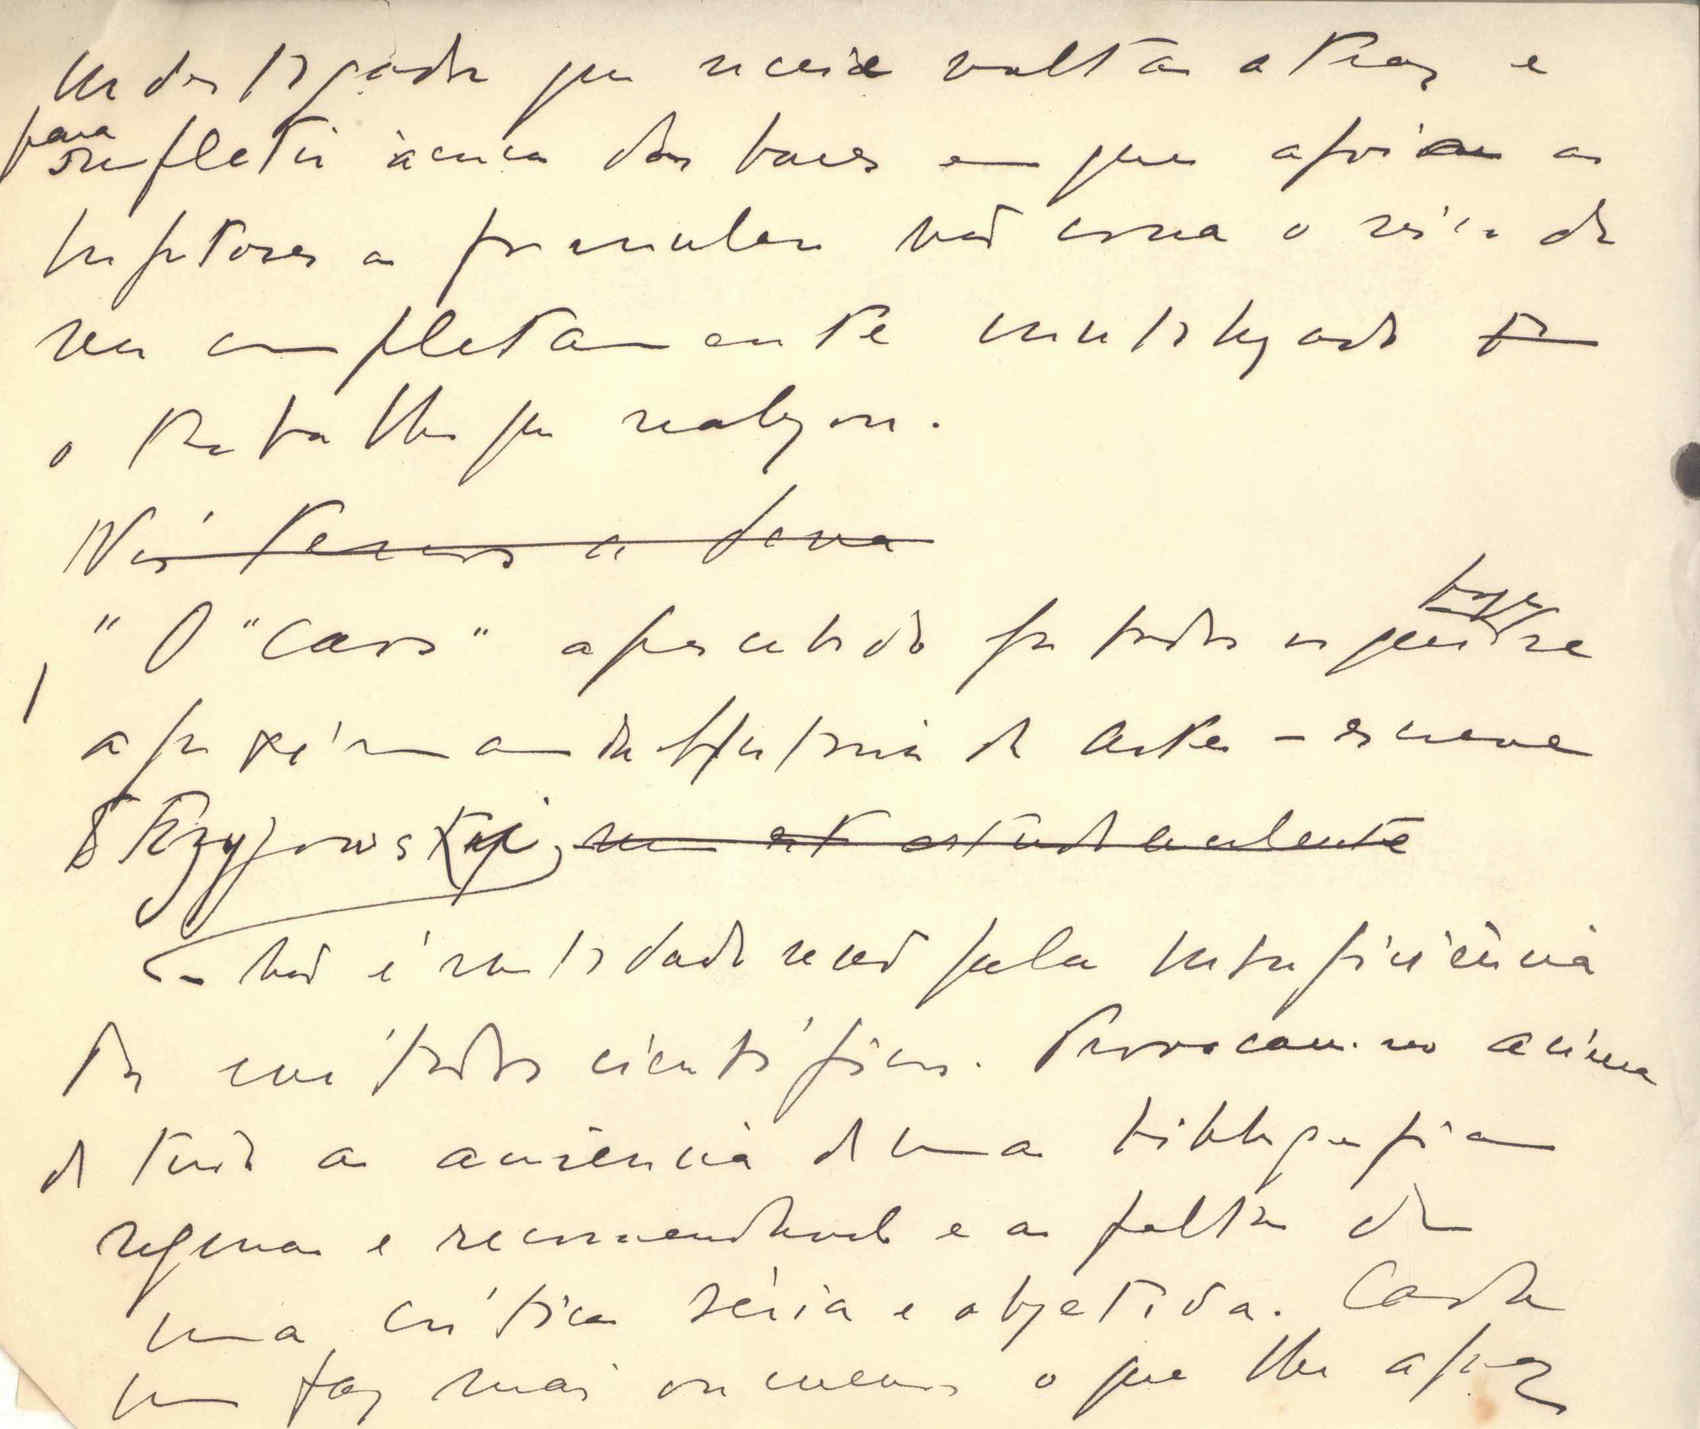 investigador que receie voltar atraz e
para refletir àcerca das bases em que apoiam as
hipoteses a formular não corra o risco de
ver completamente inutilizado
o trabalho que realizou.
Nós temos a
" O "caos" apercebido por todos os que hoje se
aproximam da história da arte – escreve
Strzygowski,
– não é motivado senão pela insuficiência
dos métodos científicos. Provocam-no acima
de tudo a ausência de uma bibliografia
rigorosa e recomendavel e a falta de
uma critica séria e objetiva. Cada
um faz mais ou menos o que lhe apraz